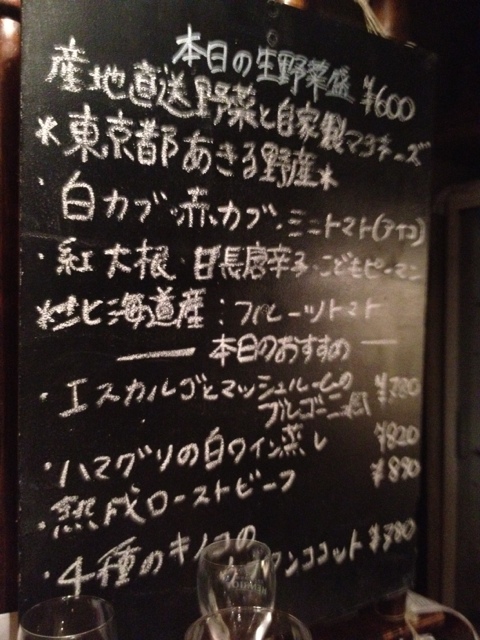 本日の生野菜盛 ¥600
産地直送野菜と自家製マヨネーズ
*東京都あきる野産*
・白カブ・赤カブ・ミニトマト(アイコ)
・紅大根・甘長唐辛子・こどもピーマン
*北海道産:フルーツトマト
本日のおすすめ
・エスカルゴとマッシュルームの
ブルゴーニュ風
・ハマグリの白ワイン蒸し ¥820
・熟成ローストビーフ
・4種のキノコの
ココット